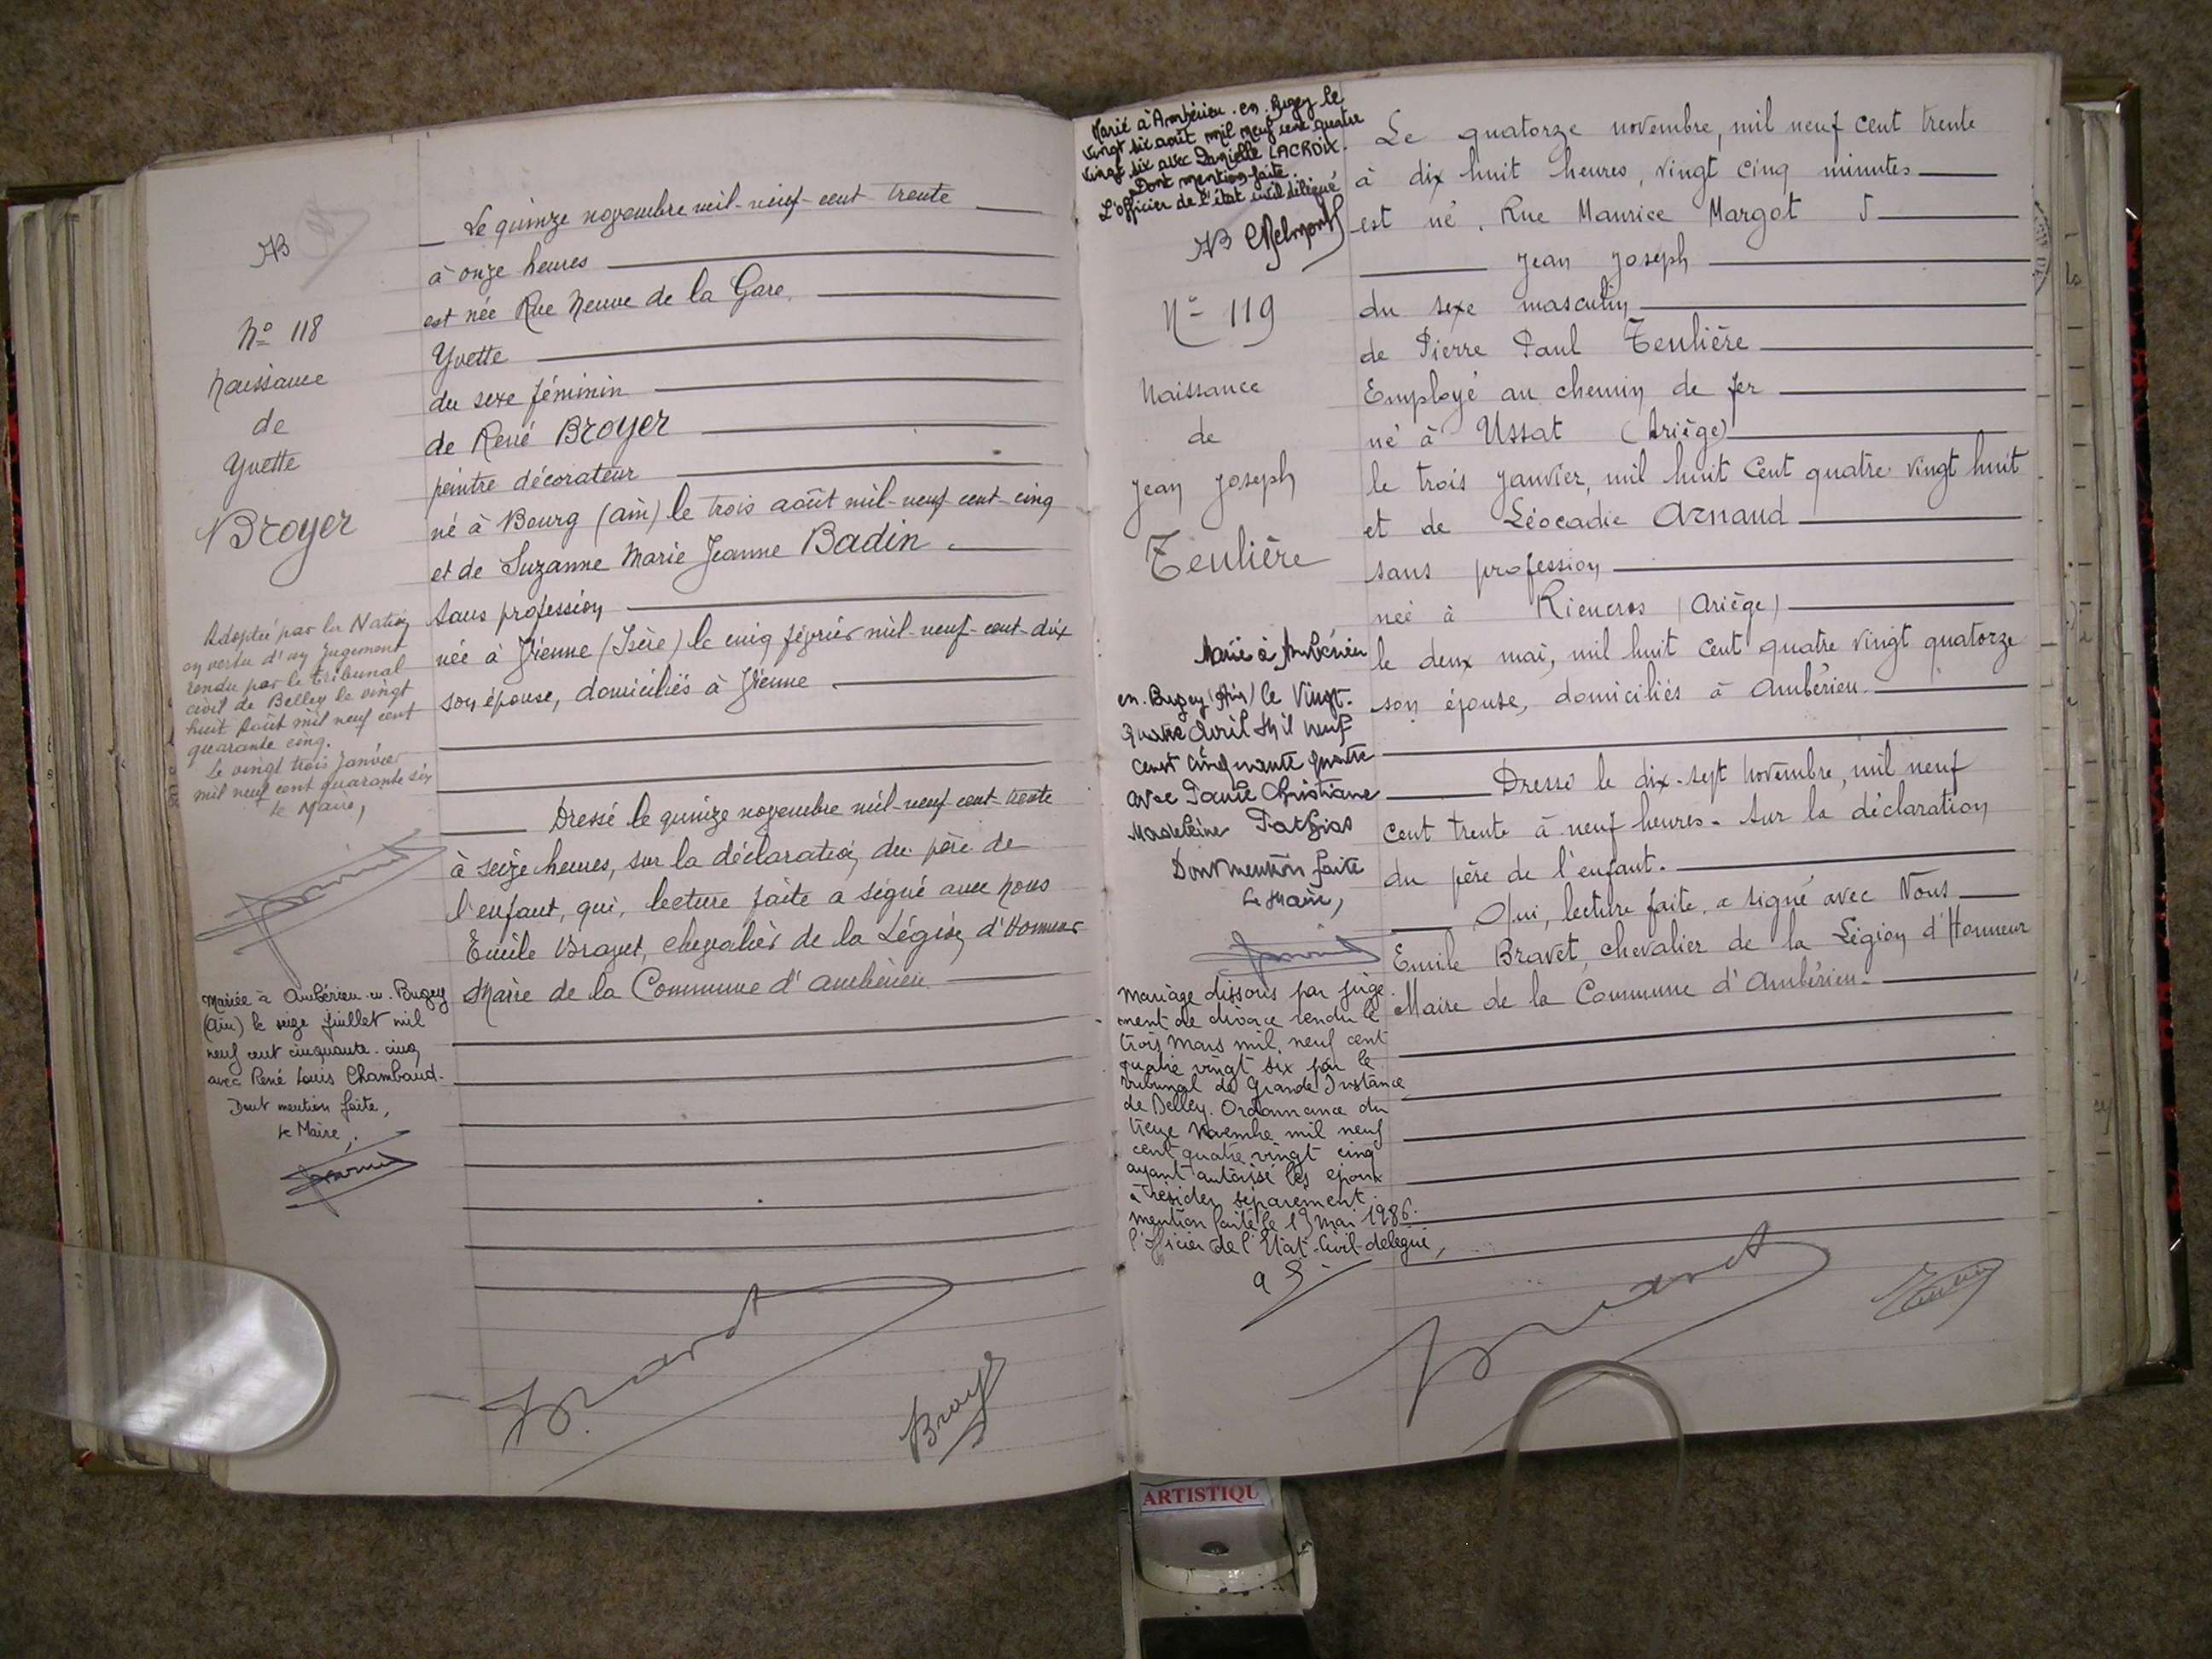 AB
N° 118
Naissance
de
Yvette
Broyer
Adoptée par la Nation
en vertu d'un jugement
rendu par le tribunal
civil de Belley le vingt
huit Août mil neuf cent
quarante cinq.
Le vingt trois Janvier
mil neuf cent quarante six
Le Maire,
Mariée à Ambérieu-en-Bugey
(Ain) le seize Juillet mil
neuf cent cinquante-cinq
avec René Louis Chambaud.
Dont mention faite,
Le Maire,
Le quinze novembre mil-neuf-cent trente
à onze heures
est née Rue Neuve de la Gare,
Yvette
du sexe féminin
de René Broyer
peintre décorateur
né à Bourg (Ain) le trois août mil-neuf-cent-cinq
et de Suzanne Marie Jeanne Badin
sans profession
née à Vienne (Isère) le cinq février mil-neuf-cent-dix
son épouse, domiciliés à Vienne
Dressé le quinze novembre mil-neuf-cent-trente
à seize heures, sur la déclaration du père de
l'enfant, qui, lecture faite a signé avec nous
Emile Bravet, chevalier de la Légion d'Honneur
Maire de la Commune d'Ambérieu
Bravet
Broyer
Marié à Ambérieu-en-Bugey le
vingt six août mil neuf cent quatre
vingt six avec Danielle LACROIX.
Dont mention faite.
L'officier de l'état civil délégué
AB
N° 119
Naissance
de
Jean Joseph
Teulière
Marié à Ambérieu
en-Bugey (Ain) le Vingt-
Quatre Avril Mil neuf
cent cinquante quatre
avec Paule Christiane
Madeleine
Dont mention faite
Le Maire,
Mariage dissous par juge-
ment de divorce rendu le
trois Mars mil neuf cent
quatre vingt six par le
Tribunal de Grande Instance
de Belley. Ordonnance du
treize Novembre mil neuf
cent quatre vingt cinq
ayant autorisé les époux
à résider séparement.
mention faite le 19 Mai 1986.
l'officier de l'Etat-Civil délégué,
Le quatorze novembre, mil neuf cent trente
à dix huit heures, vingt cinq minutes
est né, Rue Maurice Margot 5
Jean Joseph
du sexe masculin
de Pierre Paul Teulière
Employé au chemin de fer
né à Ussat (Ariège)
le trois janvier, mil huit cent quatre vingt huit
et de Léocadie Arnaud
sans profession
née à Rieucros (Ariège)
le deux mai, mil huit cent quatre vingt quatorze
son épouse, domiciliés à Ambérieu.
Dressé le dix-sept novembre, mil neuf
cent trente à neuf heures. Sur la déclaration
du père de l'enfant.
Qui, lecture faite, a signé avec Nous
Emile Bravet, chevalier de la Légion d'Honneur
Maire de la Commune d'Ambérieu.
Bravet
ARTISTIQU